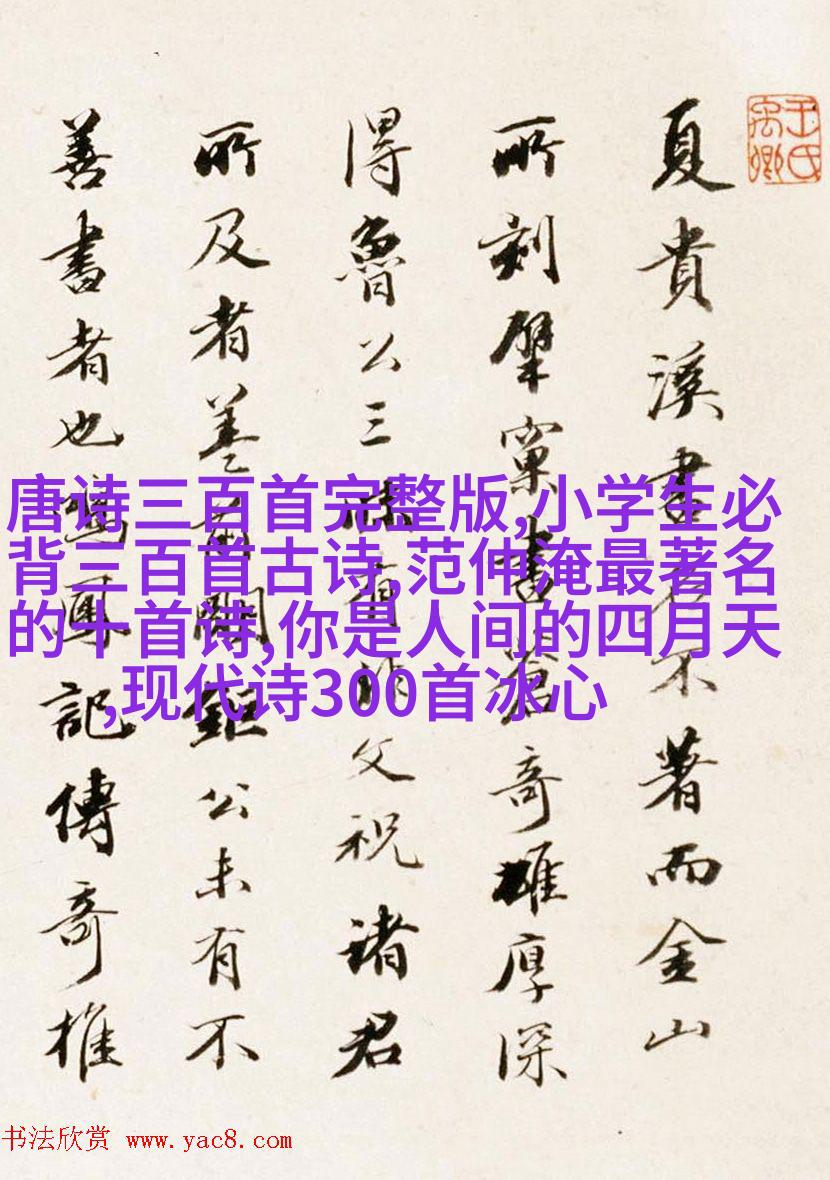 王氏
禹卿
夏貴溪書名不著而金山
所刻擘窠書蒼奇雄厚深
得魯公三有明文祝諸君
所及者蓋鉅公未有不
善書者也鳴鳳記傳奇推
唐诗三百首完整版,小学生必
背三百首古诗,范仲淹最著名
的十首诗,你是人间的四月天
,现代诗300首冰心
书法欣赏 www.yac8.com